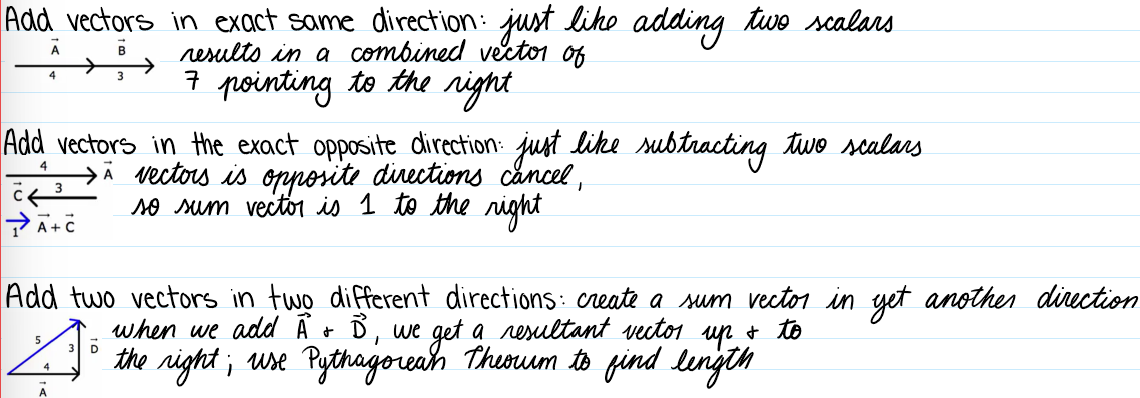 Add vectors in exact same direction: just like adding two scalars
A B results in a combined vector of
4 3 7 pointing to the right
Add vectors in the exact opposite direction: just like subtracting two scalars
4 A vectors is opposite directions cancel,
C 3 so sum vector is 1 to the right
1 A + C
Add two vectors in two different directions: create a sum vector in yet another direction
when we add A + D, we get a resultant vector up + to
5 3 D the right; use Pythagorean Theorum to find length
4
A